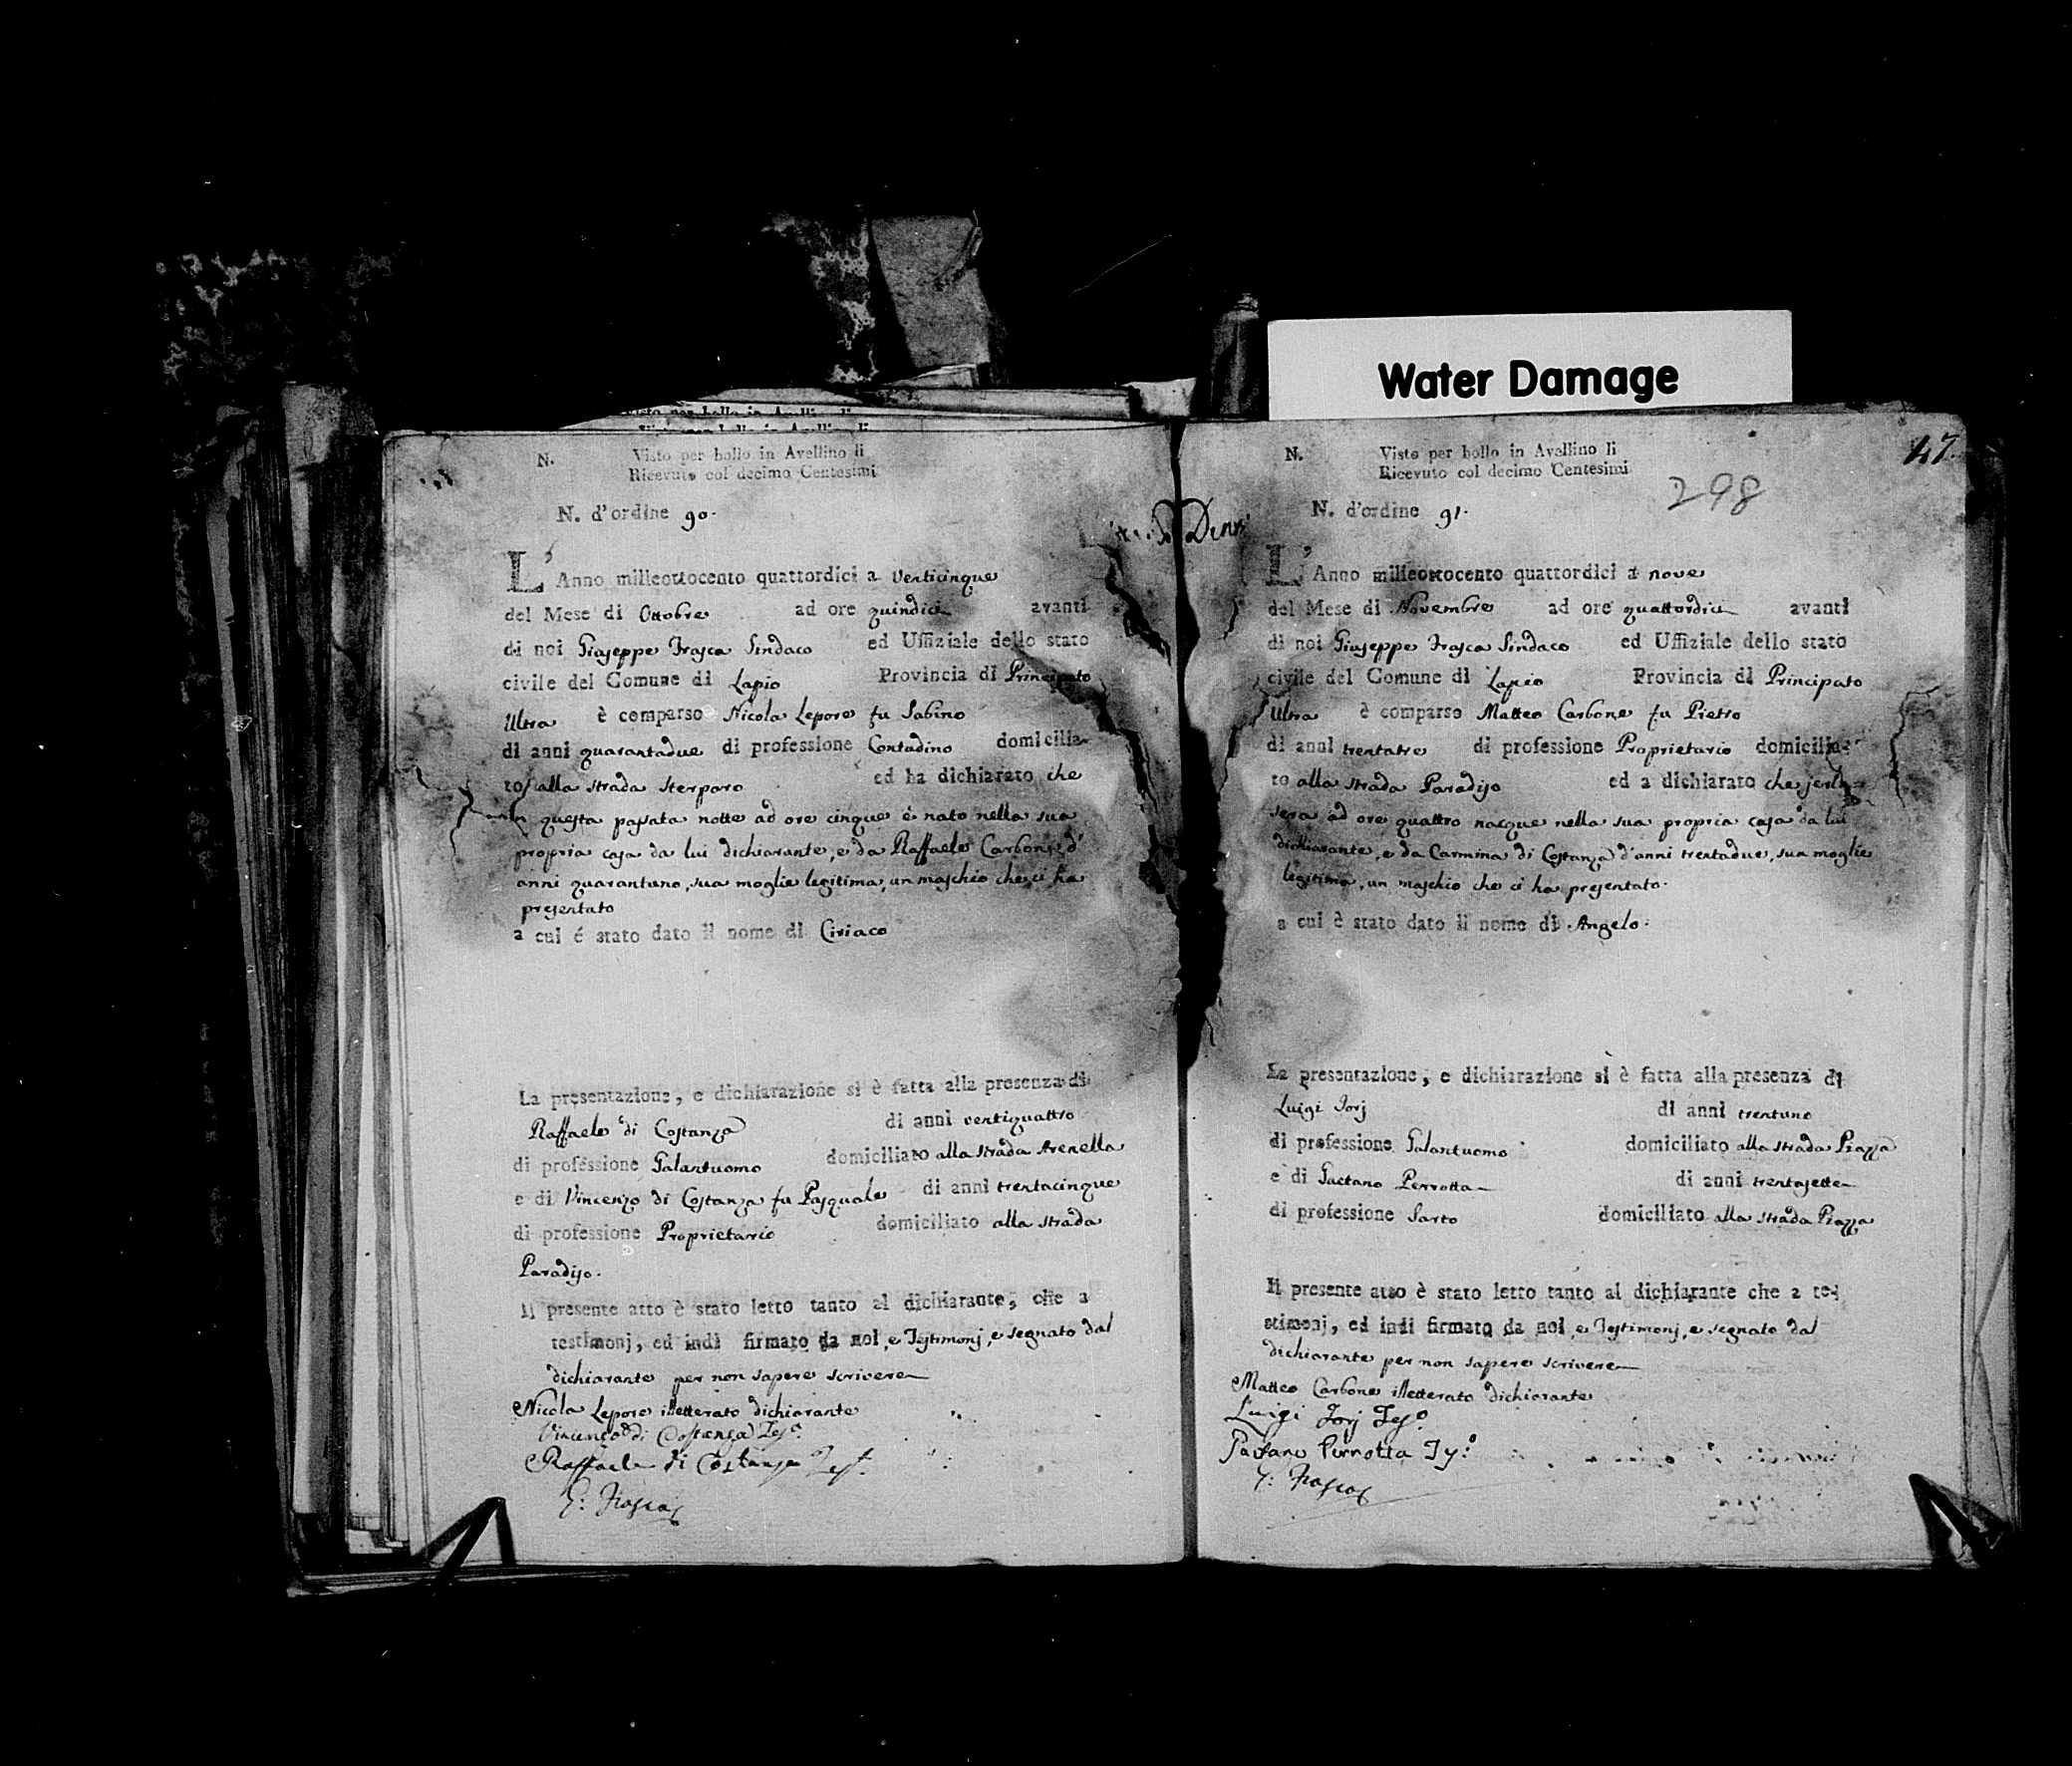 Water Damage
N. Visto per bollo in Avellino li
Ricevuto col decimo Centesimi
N. d'ordine 90.
L'Anno milleottocento quattordici a venticinque
del Mese di Ottobre ad ore quindici avanti
di noi Giuseppe Frasca Sindaco ed Uffiziale dello stato
civile del Comune di Lapio Provincia di Principato
Ultra è comparso Nicola Lepore fu Sabino
di anni quarantadue di professione Contadino domicilia-
to alla strada Sterparo ed ha dichiarato che
questa passata notte ad ore cinque è nato nella sua
propria casa da lui dichiarante, e da Raffaele Carbone d'
anni quarantuno, sua moglie legitima, un maschio che ci ha
presentato
a cui é stato dato il nome di Ciriaco
La presentazione, e dichiarazione si è fatta alla presenza di
Raffaele di Costanza di anni ventiquattro
di professione Galantuomo domiciliato alla strada Arenella
e di Vincenzo di Costanza fu Pasquale di anni trentacinque
di professione Proprietario domiciliato alla strada
Paradiso.
Il presente atto è stato letto tanto al dichiarante, che a
testimonj, ed indi firmato da noi, e Testimonj, e segnato dal
dichiarante per non sapere scrivere
Nicola Lepore illetterato dichiarante
Vincenzo di Costanza Tes.o
Raffaele di Costanza Test.
G: Frasca
47.
N. Visto per bollo in Avellino li
Ricevuto col decimo Centesimi
298
N. d'ordine 91.
L'Anno milleottocento quattordici a nove
del Mese di Novembre ad ore quattordici avanti
di noi Giuseppe Frasca Sindaco ed Uffiziale dello stato
civile del Comune di Lapio Provincia di Principato
Ultra è comparso Matteo Carbone fu Pietro
di anni trentatre di professione Proprietario domicilia-
to alla strada Paradiso ed a dichiarato che jeri
sera ad ore quattro nacque nella sua propria casa da lui
dichiarante, e da Carmina di Costanza d'anni trentadue, sua moglie
legitima, un maschio che ci ha presentato.
a cui è stato dato il nome di Angelo.
La presentazione, e dichiarazione si è fatta alla presenza di
Luigi Iorj di anni trentuno
di professione Galantuomo domiciliato alla strada Piazza
e di Gaetano Perrotta di anni trentasette
di professione Sarto domiciliato alla strada Piazza
Il presente atto è stato letto tanto al dichiarante che a te-
stimonj, ed indi firmato da noi, e Testimonj, e segnato dal
dichiarante per non sapere scrivere
Matteo Carbone illetterato dichiarante
Luigi Iorj Tes.o
Gaetano Perrotta Ts.o
G: Frasca